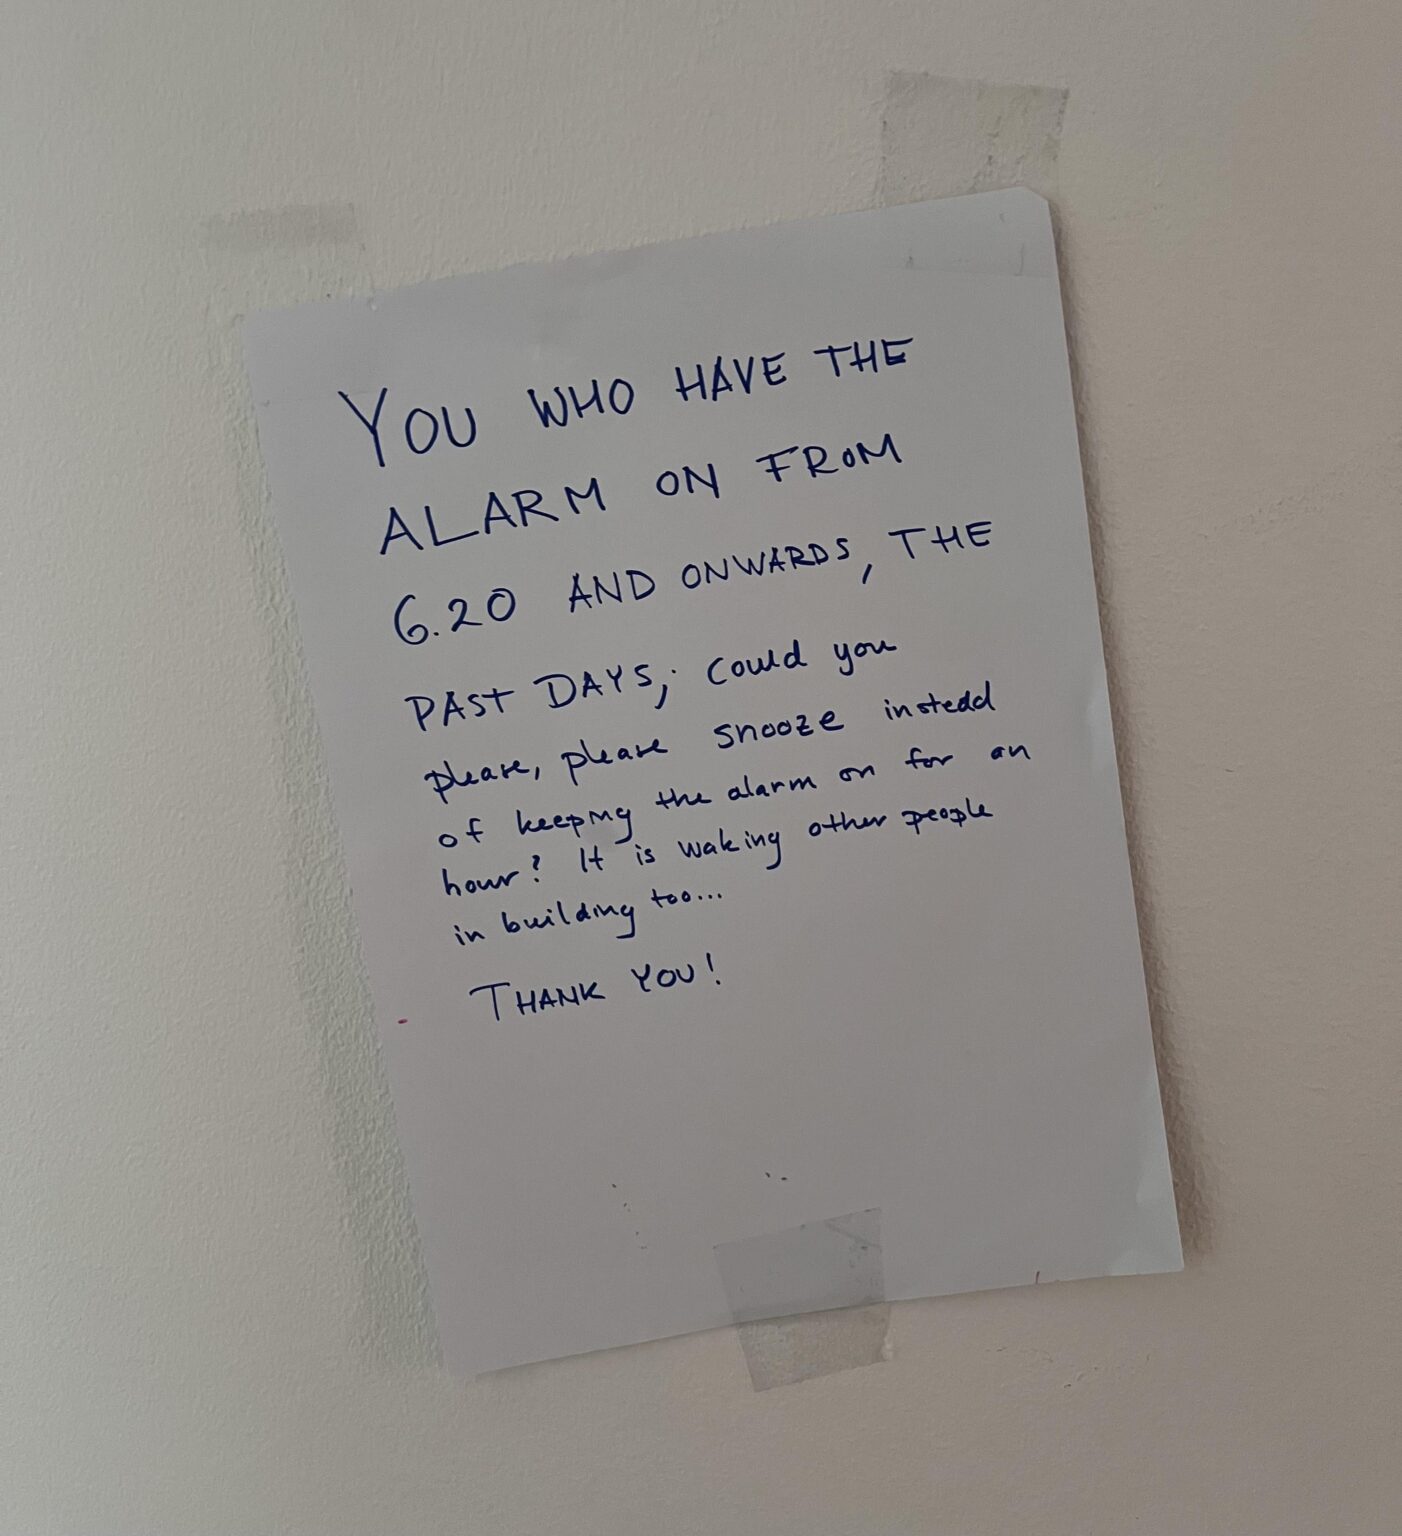 YOU WHO HAVE THE
ALARM ON FROM
6.20 AND ONWARDS, THE
PAST DAYS, could you
please, please snooze instead
of keeping the alarm on for an
hour? It is waking other people
in building too...
THANK YOU!